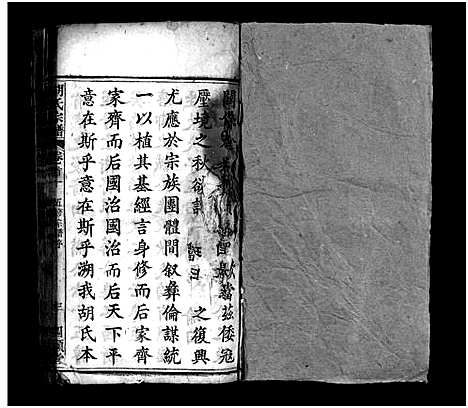 茲倭寇
壓境之秋欲言 之復興
尤應於宗族團體間叙彝倫謀統
一以植其基經言身修而后家齊
家齊而后國治國治而后天下平
意在斯乎意在斯乎溯我胡氏本
胡氏宗譜